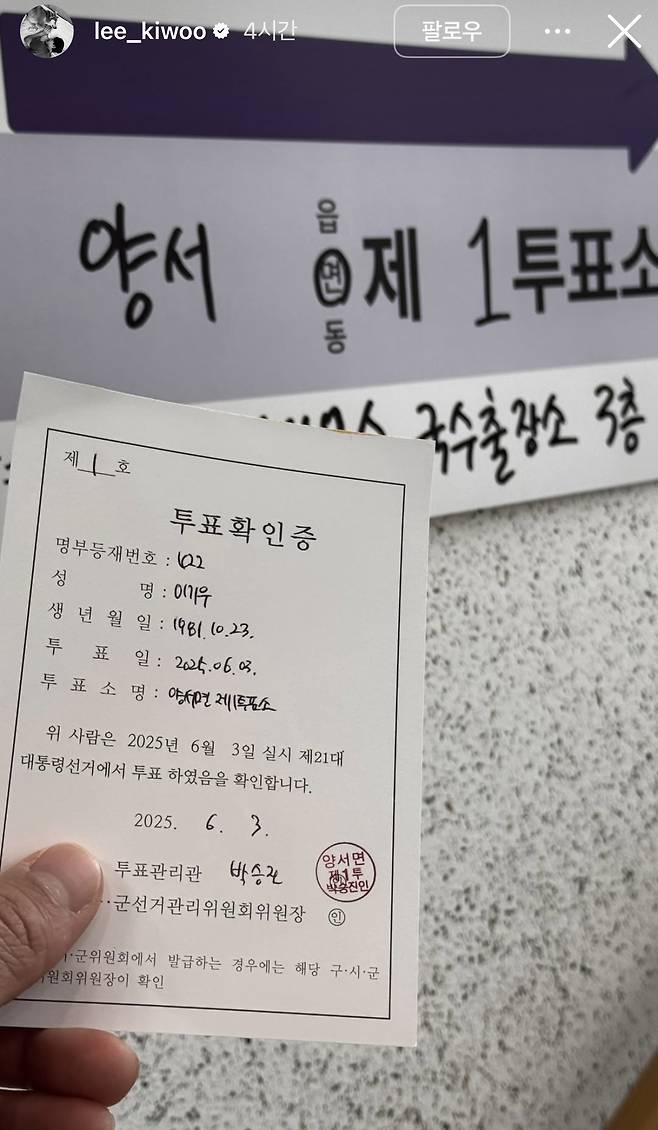 lee_kiwoo 4시간 팔로우
양서 읍면동 제 1 투표소
국수출장소 3층
제 1 호
투표확인증
명부등재번호 : 622
성 명 : 이기우
생 년 월 일 : 1981.10.23.
투 표 일 : 2025.06.03.
투 표 소 명 : 양서면 제1투표소
위 사람은 2025년 6월 3일 실시 제21대
대통령선거에서 투표 하였음을 확인합니다.
2025. 6. 3.
투표관리관 박승진
양서면
제1투
박승진인
군선거관리위원회위원장 인
군위원회에서 발급하는 경우에는 해당 구·시·군
위원회위원장이 확인